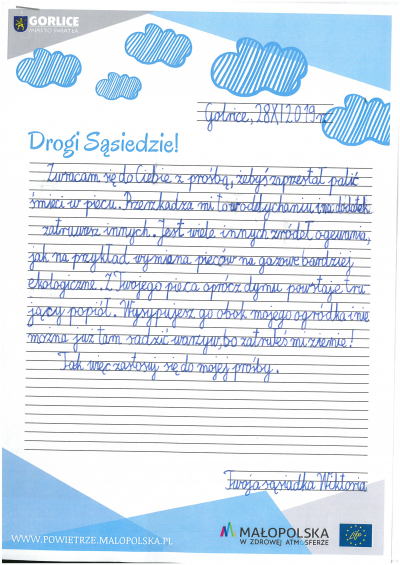 GORLICE
MIASTO ŚWIATŁA
Golnice, 28XI2019r.
Drogi Sąsiedzie!
Zwracam się do Ciebie z prośbą, żebyś zaprzestał palić
śmieci w piecu. Przeszkadza mi to w oddychaniu i na dodatek
zatruwasz innych. Jest wiele innych źródeł ogewania,
jak na przykład wymiana pieców na gazowe bardziej
ekologiczne. Z Twojego pieca oprócz dymu powstaje tru-
jący popiół. Wysypujesz go obok mojego ogródka i nie
można już tam sadzić warzyw, bo zatrułeś mi ziemię!
Tak więc zastosuj się do mojej prośby.
Twoja sąsiadka Wiktoria
WWW.POWIETRZE.MALOPOLSKA.PL
MAŁOPOLSKA
W ZDROWEJ ATMOSFERZE
life